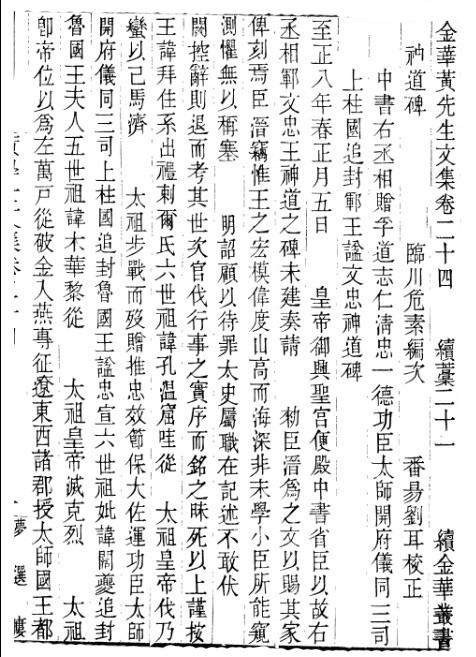 金華黃先生文集卷二十四　續藁二十一　續金華叢書
神道碑　臨川危素編次　番昜劉耳校正
中書右丞相贈孚道志仁清忠一德功臣太師開府儀同三司
上柱國追封鄆王諡文忠神道碑
至正八年春正月五日　皇帝御興聖宮便殿中書省臣以故右
丞相鄆文忠王神道之碑未建奏請　勑臣溍爲之文以賜其家
俾刻焉臣溍竊惟王之宏模偉度山高而海深非末學小臣所能窺
測懼無以稱塞　明詔顧以待罪太史屬職在記述不敢伏
閟控辭則退而考其世次官伐行事之實序而銘之昧死以上謹按
王諱拜住系出禮剌爾氏六世祖諱孔溫窟哇從　太祖皇帝伐乃
蠻以己馬濟　太祖步戰而歿贈推忠效節保大佐運功臣太師
開府儀同三司上柱國追封魯國王諡忠宣六世祖妣諱闊夔追封
魯國王夫人五世祖諱木華黎從　太祖皇帝滅克烈　太祖
卽帝位以爲左萬戶從破金入燕專征遼東西諸郡授太師國王都
夢選廔